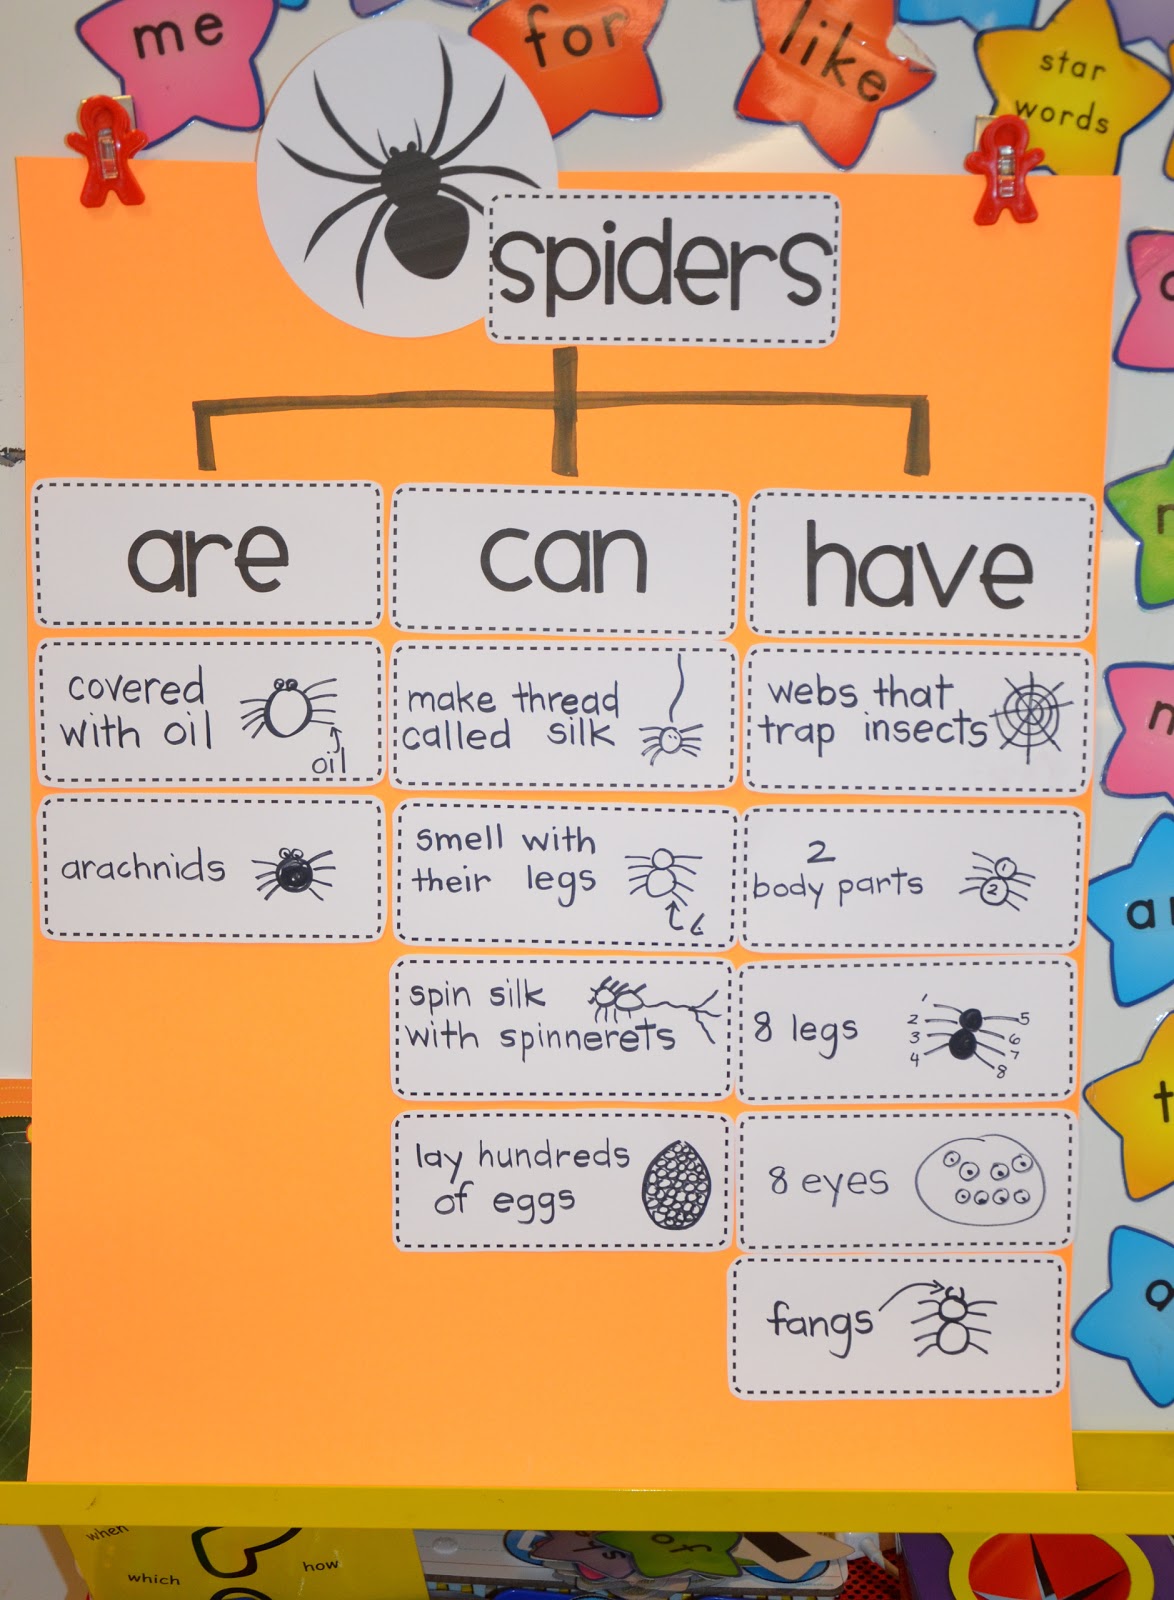 me
for
like
star
words
spiders
are
can
have
covered
with oil
oil
arachnids
make thread
called silk
smell with
their legs
spin silk
with spinnerets
lay hundreds
of eggs
webs that
trap insects
2
body parts
1
2
8 legs
1
2
3
4
5
6
7
8
8 eyes
fangs
when
which
how
of